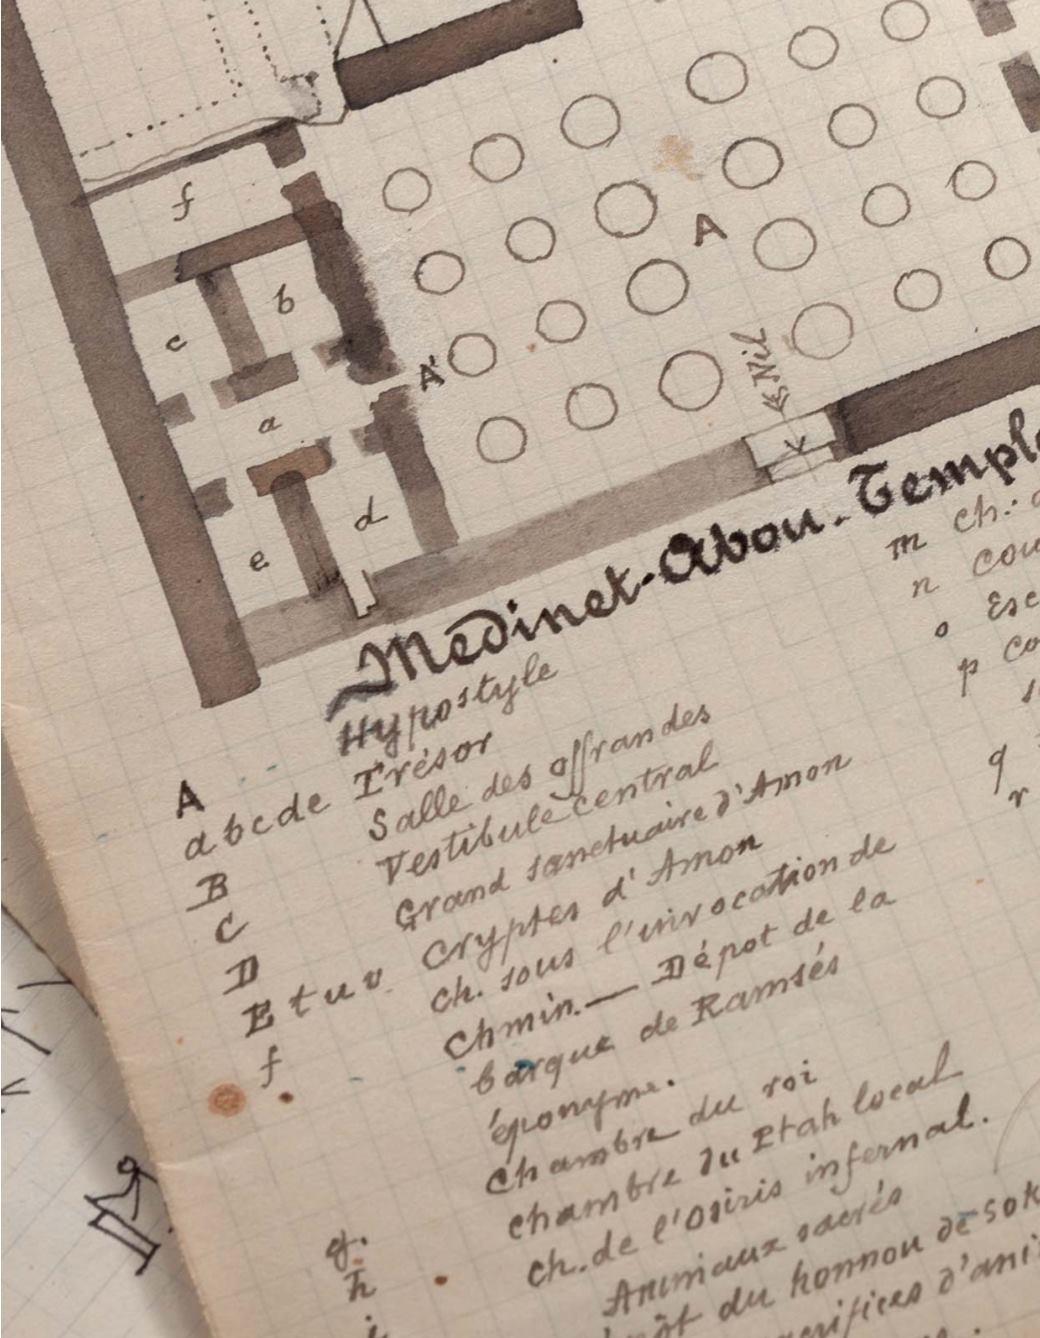 f
b
c
A
a
A'
«« Nil
d
e
Medinet-Abou. Temple
A Hypostyle
abcde Trésor
B Salle des offrandes
C Vestibule central
D Grand sanctuaire d'Amon
E t u v. Cryptes d'Amon
f ch. sous l'invocation de
Chmin. — Dépot de la
barque de Ramsés
éponyme.
g. Chambre du roi
h chambre du Ptah local
i ch. de l'Osiris infernal.
Animaux sacrés
du honnou de sok
d'ani
m ch:
n cou
o Esc
p co
q
r